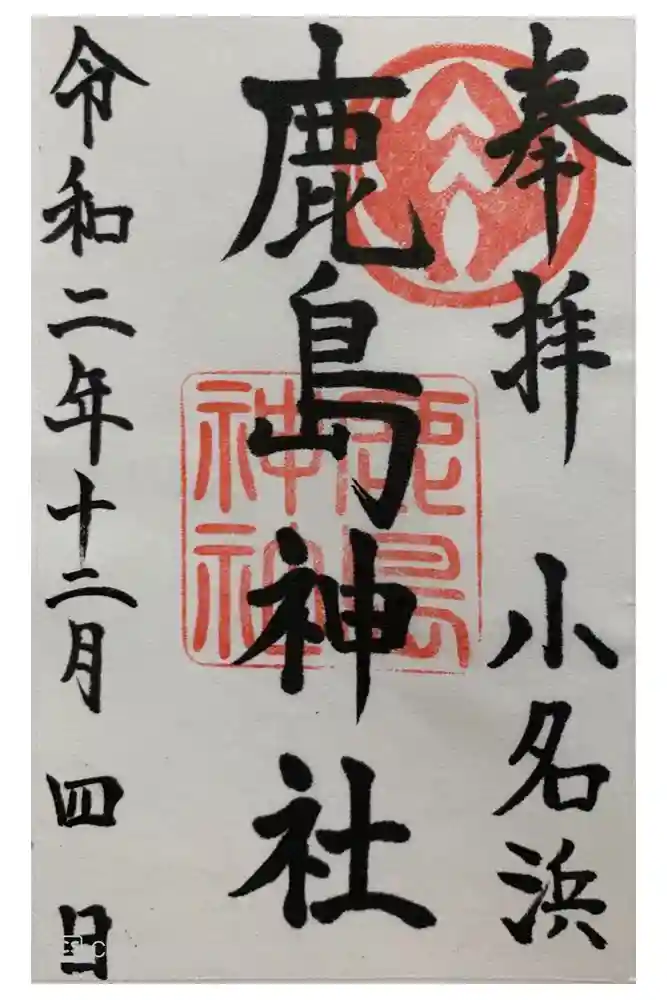 奉拝 小名浜
鹿島神社
鹿島
神社
令和二年十二月四日